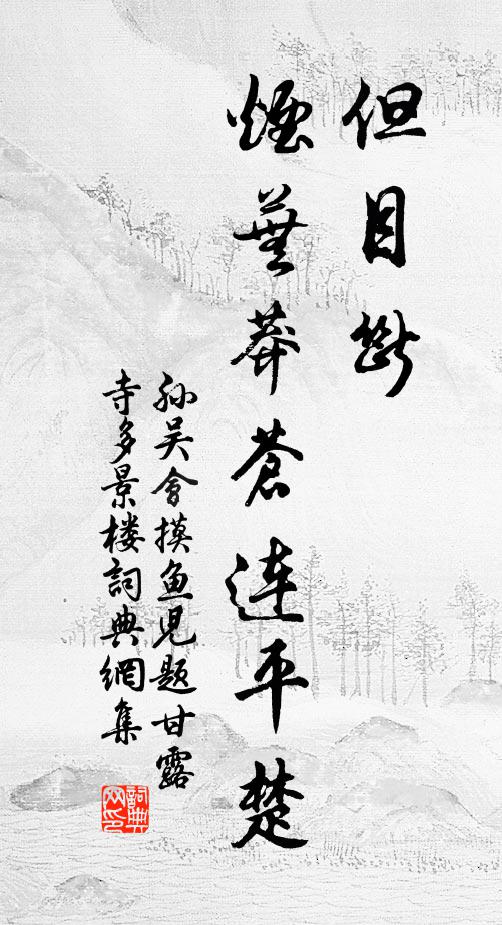 但目断
烟芜莽苍连平楚
孙吴会摸鱼儿题甘露
寺多景楼词典网集
词典网印